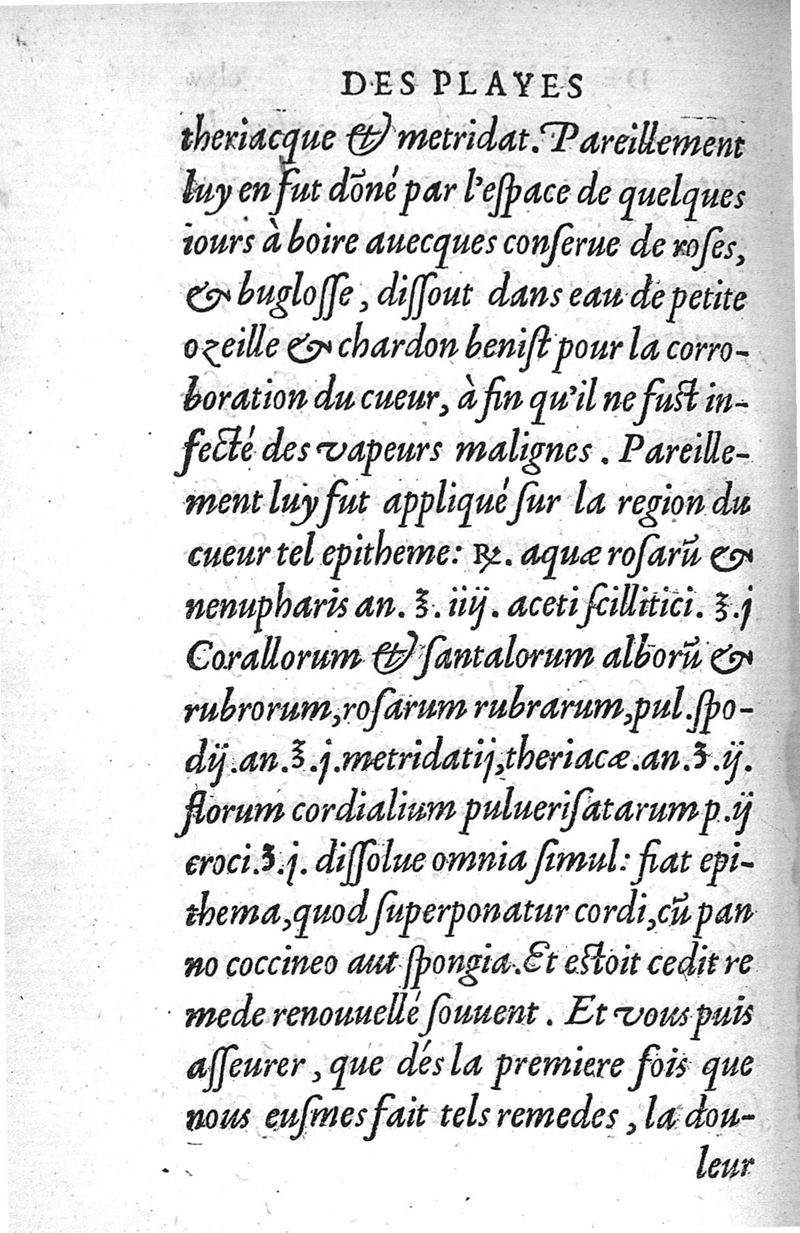 DES PLAYES
theriacque & metridat. Pareillement
luy en fut dõné par l'eſpace de quelques
iours à boire auecques conſerue de roſes,
& bugloſſe, diſſout dans eau de petite
ozeille & chardon beniſt pour la corro-
boration du cueur, à fin qu'il ne fuſt in-
fecté des vapeurs malignes. Pareille-
ment luy fut appliqué ſur la region du
cueur tel epitheme: ℞. aquæ roſarũ &
nenupharis an. ℥. iiij. aceti ſcillitici. ℥.j
Corallorum & ſantalorum alborũ &
rubrorum, roſarum rubrarum, pul. ſpo-
dij. an. ℥.j. metridatij, theriacæ. an. ʒ.ij.
florum cordialium pulueriſatarum p.ij
croci. ʒ.j. diſſolue omnia ſimul: fiat epi-
thema, quod ſuperponatur cordi, cũ pan
no coccineo aut ſpongia. Et eſtoit cedit re
mede renouuellé ſouuent. Et vous puis
aſſeurer, que dés la premiere fois que
nous euſmes fait tels remedes, la dou-
leur